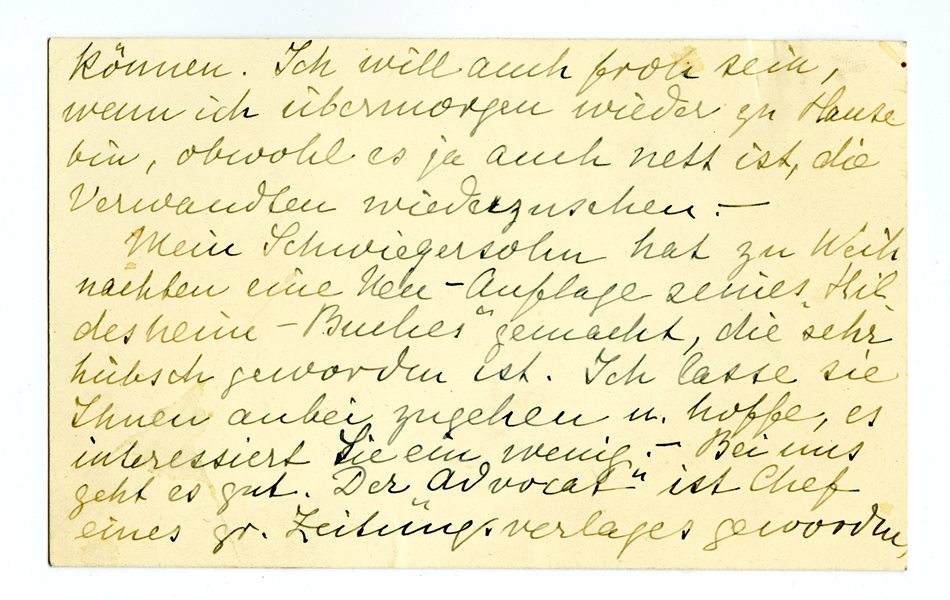 können. Ich will auch froh sein,
wenn ich übermorgen wieder zu Hause
bin, obwohl es ja auch nett ist, die
Verwandten wiederzusehen. —
Mein Schwiegersohn hat zu Weih
nachten eine Neu-Auflage seines „Hil
desheim-Buches" gemacht, die sehr
hübsch geworden ist. Ich lasse sie
Ihnen anbei zugehen u. hoffe, es
interessiert Sie ein wenig. — Bei uns
geht es gut. Der Advocat" ist Chef
eines gr. Zeitungsverlages geworden,